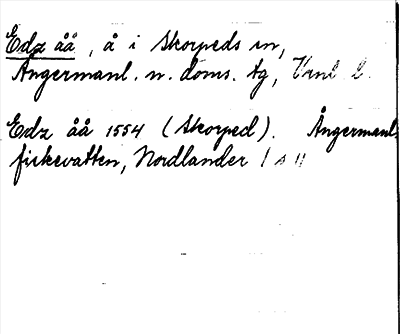 Edz åå, å i Skorpeds sn,
Ångermanl. n. doms. tg, Vrnl l.
Edz åå 1554 (Skorped). Ångermanl.
fiskevatten, Nordlander I s 11